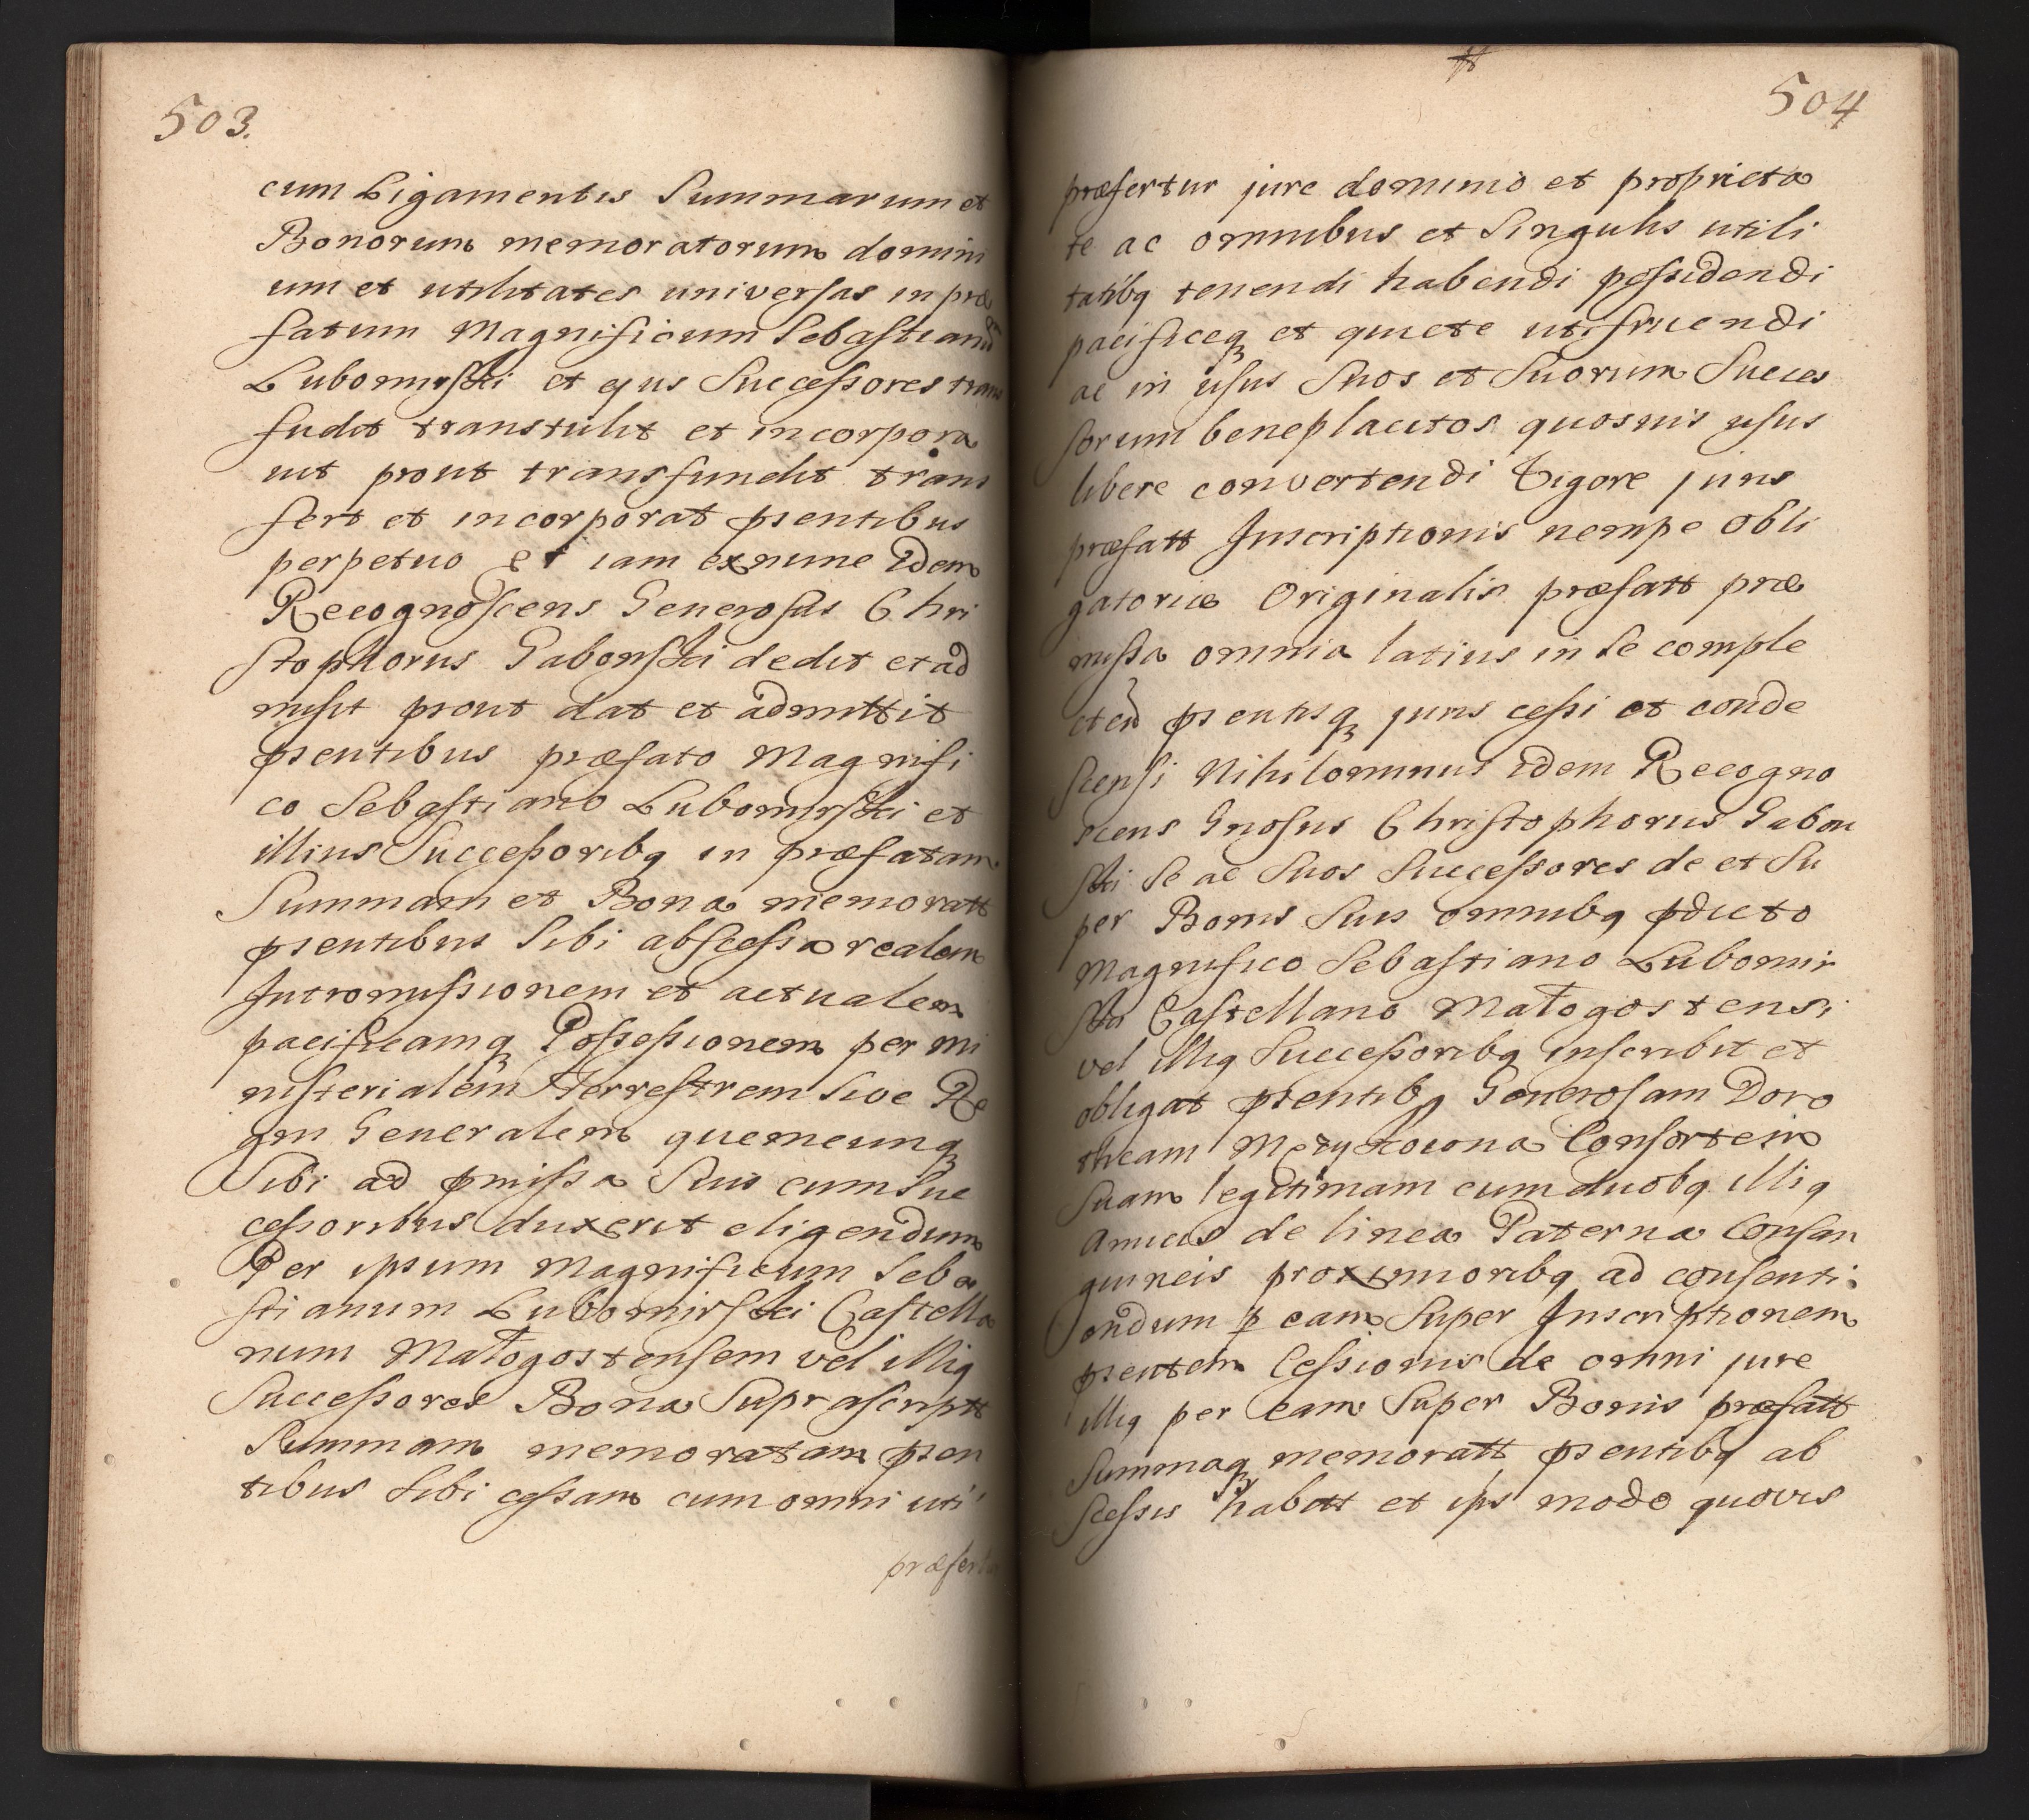 503.
cum Ligamentis Summarum et
Bonorum memoratorum domini
um et utilitates universas in præ
fatum Magnificum Sebastianũ
Lubomirski et ejus Successores trans
fudit transtulit et incorpora
vit prout transfundit trans
fert et incorporat pśentibus
perpetuo Et iam exnunc Idem
Recognoscens Generosus Chri
stophorus Gabonski dedit et ad
misit prout dat et admittit
pśentibus præfato Magnifi
co Sebastiano Lubomirski et
illius Successoribq in præfatam
Summam et Bona memoratt
pśentibus Sibi abscessa realem
Intromissionem et actualem
pacificamq Possessionem per mi
nisterialem Terrestrem Sive Re
gni Generalem quemcunq
Sibi ad pmissa Suis cum Suc
cessoribus duxerit eligendum
Per ipsum Magnificum Seba
stianum Lubomirski Castella
num Małogostensem vel illiq
Successores Bona Suprascriptt
Summam memoratam pśen
tibus Sibi cessam cum omni uti
præfert
504
præfertur jure dominio et proprieta
te ac omnibus et Singulis utili
tatibq tenendi habendi possidendi
pacificeq et quiete utifruendi
ac in usus Suos et Suorum Succes
sorum beneplacitos quosvis usus
libere convertendi Vigore juris
præfatt Inscriptionis nempe Obli
gatoriæ Originalis præfatt præ
missa omnia latius in Se comple
cteñ pśentisq juris cessi et conde
scensi Nihilominus Idem Recogno
scens Gnosus Christophorus Gabon
ski Se ac Suos Successores de et Su
per Bonis Suis omnibq pdicto
Magnifico Sebastiano Lubomir
ski Castellano Małogostensi
vel illiq Successoribq inscribit et
obligat pśentibq Generosam Doro
theam Consortem
Suam legitimam cum duobq illiq
Amicis de linea Paterna Consan
guineis proximioribq ad consenti
endum p eam Super Inscriptionem
pśentem Cessionis de omni jure
illiq per eam Super Bonis præfatt
Summaq memoratt pśentibq ab
scessis habitt et ips modo quovis